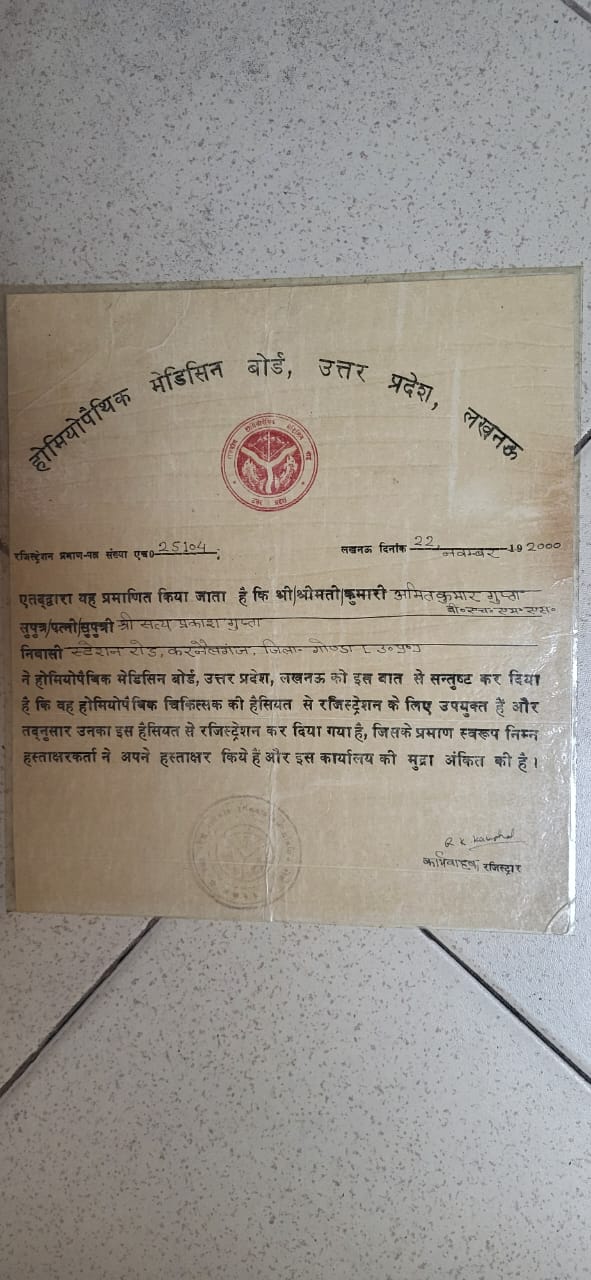 होमियोपैथिक मेडिसिन बोर्ड, उत्तर प्रदेश, लखनऊ
रजिस्ट्रेशन प्रमाण-पत्र संख्या एच० 25104;
लखनऊ दिनांक 22, नवम्बर 192000
एतद्द्वारा यह प्रमाणित किया जाता है कि श्री/श्रीमती/कुमारी अमित कुमार गुप्ता
बी०एच०एम०एस०
सुपुत्र/पत्नी/सुपुत्री श्री सत्य प्रकाश गुप्ता
निवासी स्टेशन रोड, करनैलगंज, जिला- गोण्डा [उ०प्र०]
ने होमियोपैथिक मेडिसिन बोर्ड, उत्तर प्रदेश, लखनऊ को इस बात से सन्तुष्ट कर दिया
है कि वह होमियोपैथिक चिकित्सक की हैसियत से रजिस्ट्रेशन के लिए उपयुक्त हैं और
तद्नुसार उनका इस हैसियत से रजिस्ट्रेशन कर दिया गया है, जिसके प्रमाण स्वरूप निम्न
हस्ताक्षरकर्ता ने अपने हस्ताक्षर किये हैं और इस कार्यालय की मुद्रा अंकित की है।
R K
कार्यवाहक रजिस्ट्रार